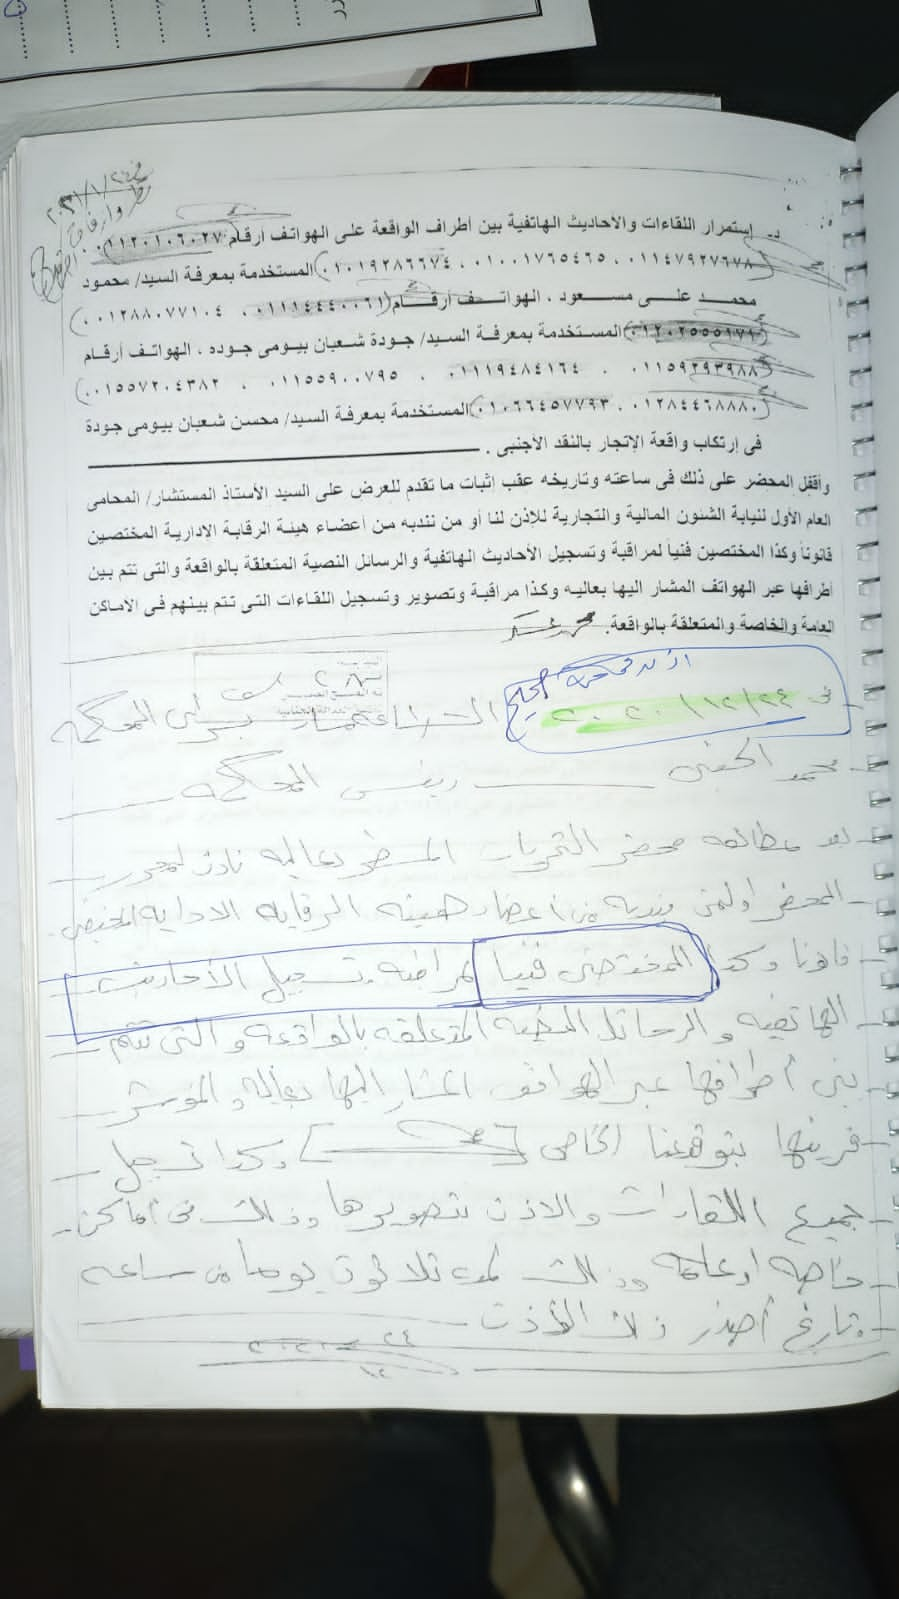 د- إستمرار اللقاءات والأحاديث الهاتفية بين أطراف الواقعة على الهواتف أرقام (٠١١٢٠١٠٦٠٢٧
٠١١٤٧٩٢٧٦٧٨ ، ٠١٠٠١٧٦٥٤٦٥ ، ٠١٠١٩٢٨٦٦٧٤) المستخدمة بمعرفة السيد/ محمود
محمد على مسعود ، الهواتف أرقام (٠١١١٤٤٤٠٠٦١ ، ٠١٢٨٨٠٧٧١٠٤ ،
٠١٢٠٢٥٥٥١٧١) المستخدمة بمعرفة السيد/ جودة شعبان بيومى جوده ، الهواتف أرقام
(٠١١٥٩٢٩٣٩٨٨ ، ٠١١١٩٤٨٤١٦٤ ، ٠١١٥٥٩٠٠٧٩٥ ، ٠١٥٥٧٢٠٤٣٨٢ ،
٠١٢٨٤٤٦٨٨٨٠ ، ٠١٠٦٦٤٥٧٧٩٣) المستخدمة بمعرفة السيد/ محسن شعبان بيومى جودة
فى إرتكاب واقعة الإتجار بالنقد الأجنبى .
وأقفل المحضر على ذلك فى ساعته وتاريخه عقب إثبات ما تقدم للعرض على السيد الأستاذ المستشار/ المحامى
العام الأول لنيابة الشئون المالية والتجارية للإذن لنا أو من نندبه من أعضاء هيئة الرقابة الادارية المختصين
قانوناً وكذا المختصين فنيا لمراقبة وتسجيل الأحاديث الهاتفية والرسائل النصية المتعلقة بالواقعة والتى تتم بين
أطرافها عبر الهواتف المشار اليها بعاليه وكذا مراقبة وتصوير وتسجيل اللقاءات التى تتم بينهم فى الأماكن
العامة والخاصة والمتعلقة بالواقعة.
فى ٢٠٢٠/١٢/٢٤
محمد الحسينى رئيس المحكمة
بعد مطالعه محضر التحريات المسطر بعاليه نأذن لمحرر
المحضر او لمن يندبه من أعضاء هيئه الرقابه الاداريه المختصين
قانونا وكذا المختصين فنيا لمراقبه وتسجيل الأحاديث
الهاتفيه والرسائل النصيه المتعلقه بالواقعه والتى تتم
بين أطرافها عبر الهواتف المشار اليها بعاليه والمؤشر
قرينها بتوقيعنا الخاص [ ] وكذا تسجيل
جميع اللقاءات والاذن بتصويرها وذلك فى أماكن
خاصه او عامه وذلك لمده ثلاثون يوما من ساعه
وتاريخ أصدر ذلك الأذن
٢٠٢٠ ٢٤
١٢